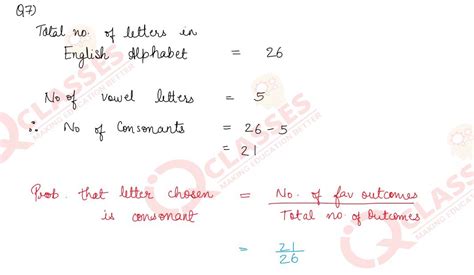 Q7)
Total no. of letters in
English Alphabet = 26
No of vowel letters = 5
∴ No of Consonants = 26 - 5
= 21
Prob. that letter chosen = No. of fav outcomes
is consonant Total no. of Outcomes
= 21
26
IQ CLASSES
MAKING EDUCATION BETTER
CLASSES
MAKING EDUCATION BETTER